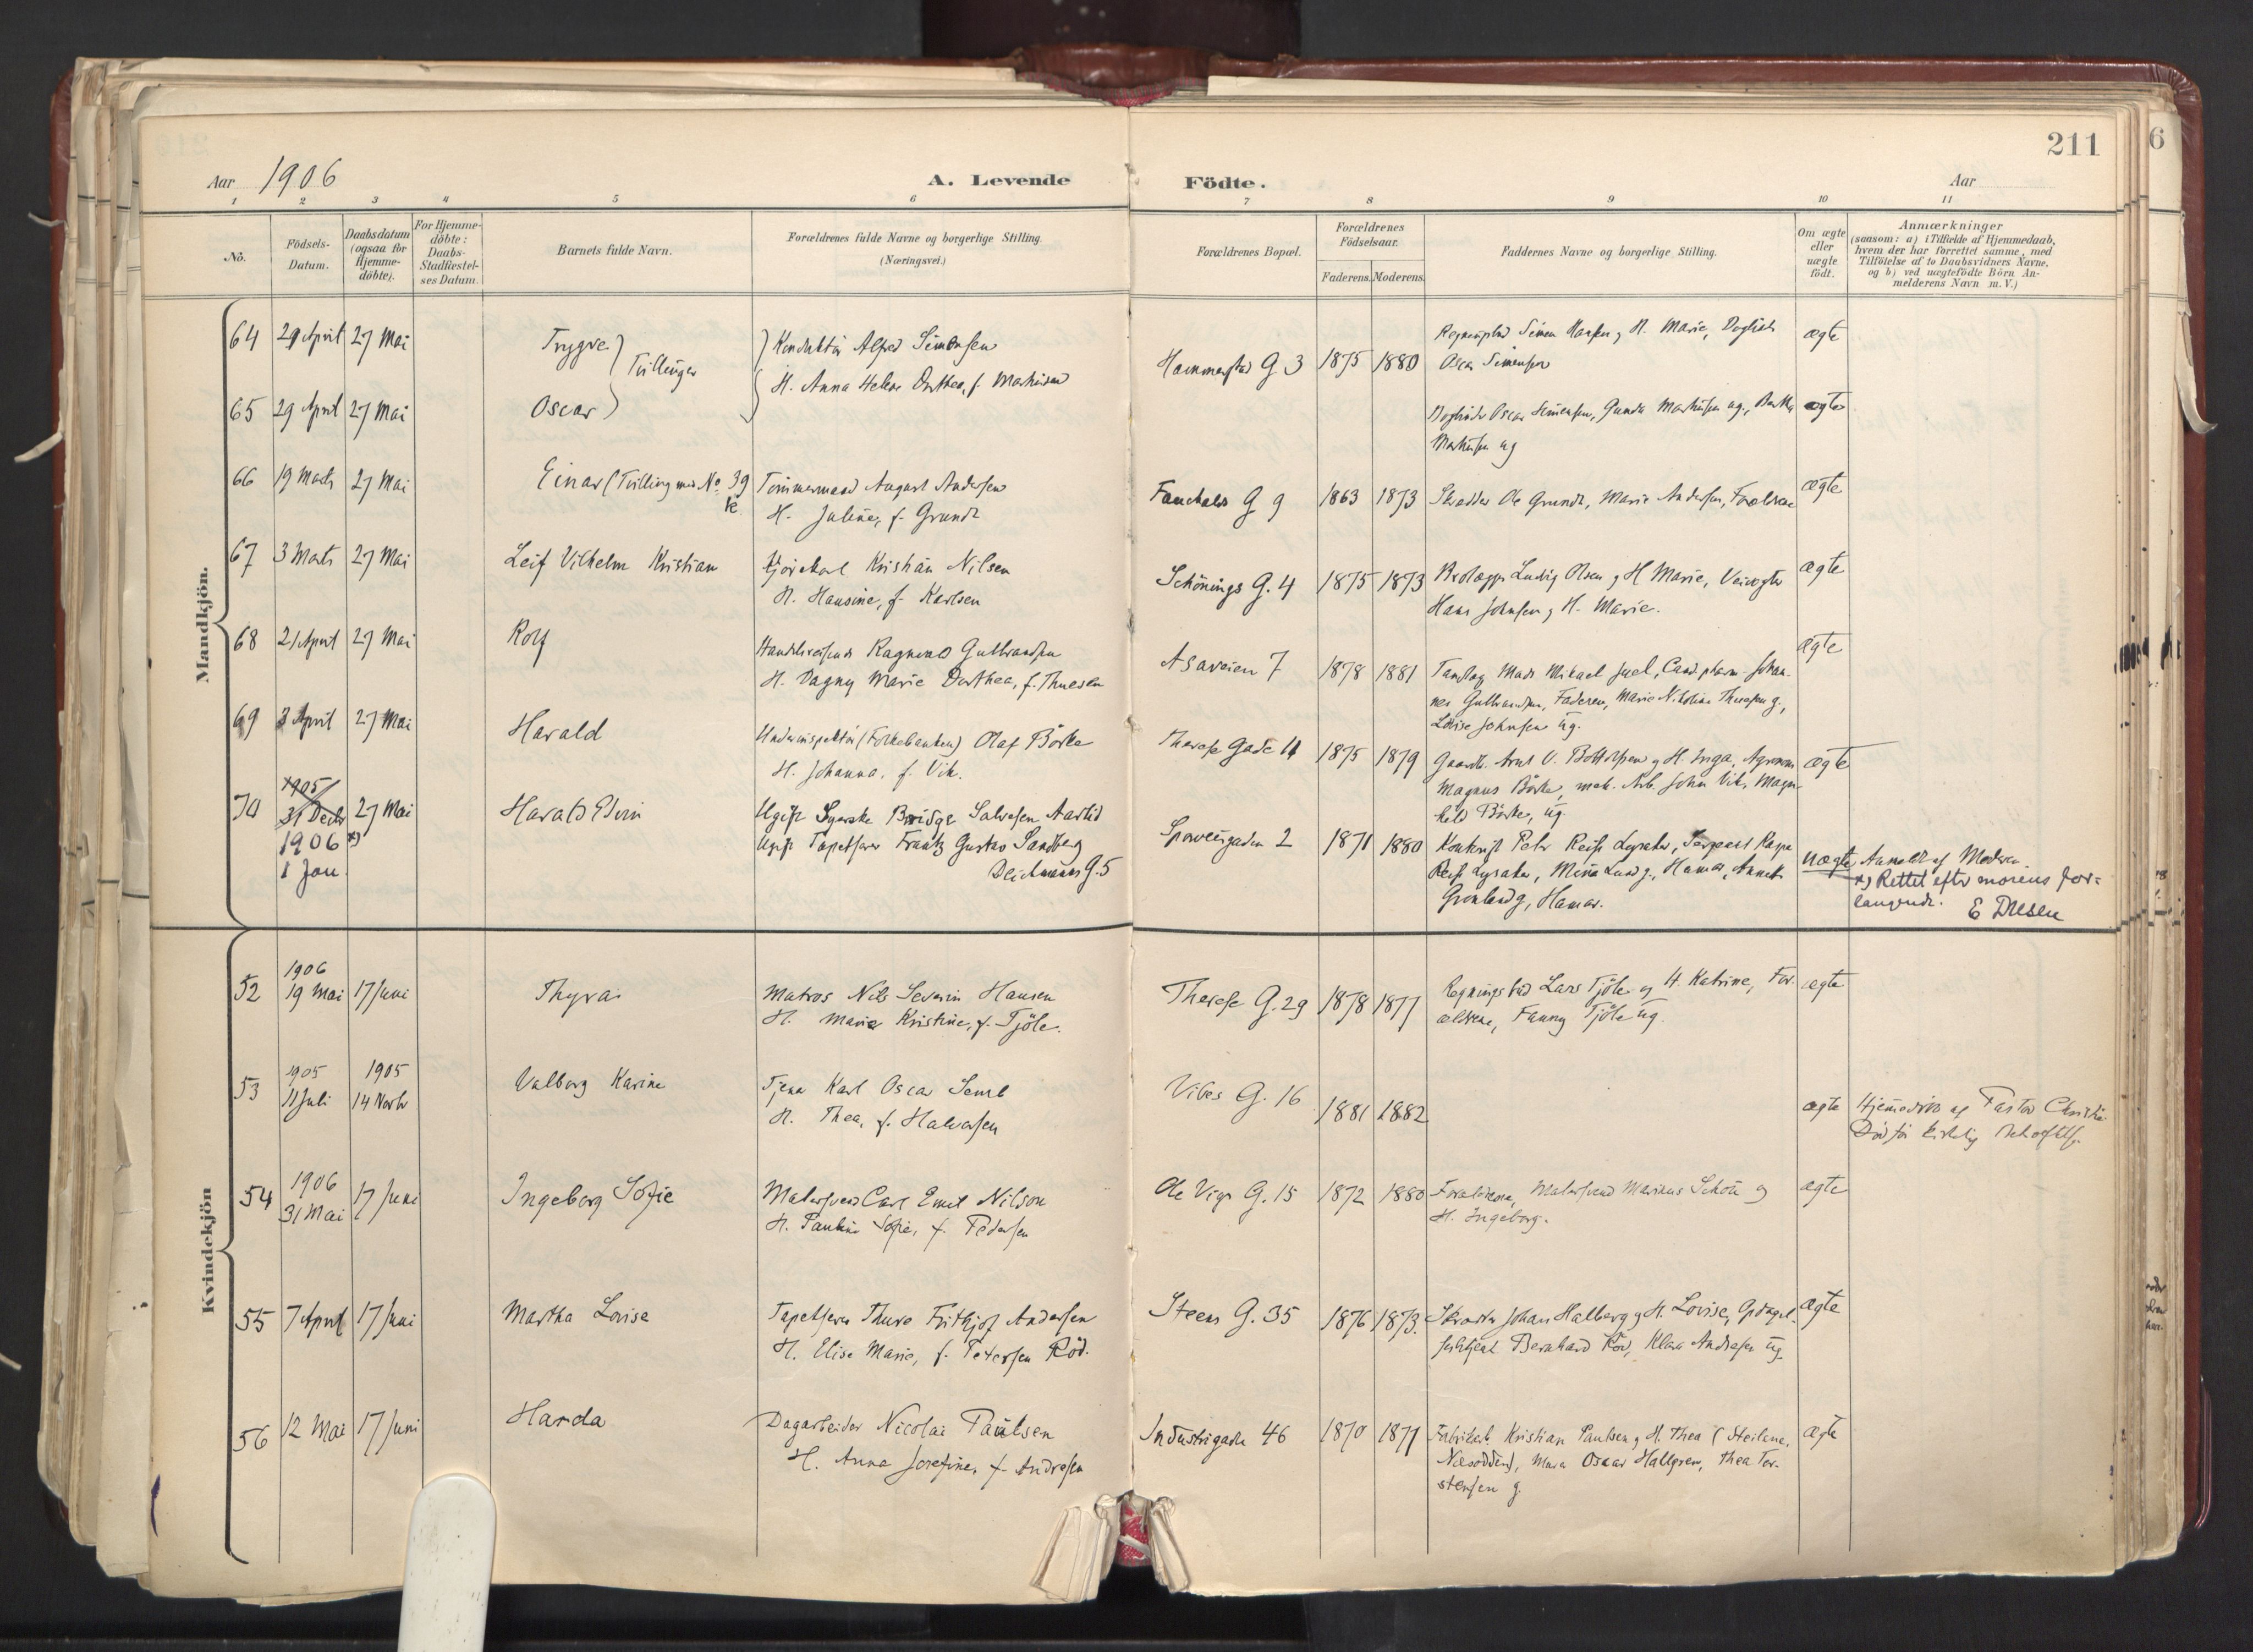 211
6
Aar 1906
A. Levende
Födte.
Aar
1 2 3 4 5 6 7 8 9 10 11
No.
Födsels-Datum.
Daabsdatum (ogsaa for Hjemme-döbte).
For Hjemme-döbte: Daabs-Stadfæstel-ses Datum.
Barnets fulde Navn.
Forældrenes fulde Navne og borgerlige Stilling.
(Næringsvei.)
Forældrenes Bopæl.
Forældrenes Födselsaar.
Faderens. Moderens.
Faddernes Navne og borgerlige Stilling.
Om ægte eller uægte födt.
Anmærkninger
(saasom: a) i Tilfælde af Hjemmedaab,
hvem der har forrettet samme, med
Tilföielse af to Daabsvidners Navne,
og b) ved uægtefödte Börn An-
melderens Navn m. V.)
Mandkjön.
64 29 April 27 Mai Trygve Tvillinger Konduktör Alfred Simensen
H. Anna Helene Dorthea, f. Markussen
Hammerstad G 3 1875 1880 Simen Hansen og H. Marie,
Oscar Simensen
ægte
65 29 April 27 Mai Oscar
Oscar Simensen, Gunda Markussen ug.,
Markussen ug
ægte
66 19 Marts 27 Mai Einar (Tvilling med No. 39 k
Tömmermand August Andersen
H. Juline, f. Grundt
Fauchalds G 9 1863 1873 Skrædder Ole Grundt, Marie Andersen, Forældrene
ægte
67 3 Marts 27 Mai Leif Vilhelm Kristian
Kristian Nilsen
H. Hansine, f. Karlsen
Schönings G. 4 1875 1873 Ludvig Olsen og H Marie,
Hans Johnsen og H. Marie.
ægte
68 21 April 27 Mai Rolf
Handelsreisende Ragnvald Gulbrandsen
H. Dagny Marie Dorthea, f. Thuesen
Asaveien 7 1878 1881 Tandlæge Mads Mikael Juel, Cand. pharm. Johan-
nes Gulbrandsen, Faderen, Marie Nikoline Thuesen g.,
Lovise Johnsen ug.
ægte
69 3 April 27 Mai Harald
Underinspektör (Folkebanken) Olaf Börke
H. Johanna, f. Vik.
Therese Gade 11 1875 1879 Gaardb. Arnt O. Bottolfsen og H. Inga, Agronom
Magnus Börke, mek. Arb. John Vik, Magn-
hild Börke, ug.
ægte
70 1905 31 Decbr 1906 x) 1 Jan. 27 Mai Harald Edvin
Ugift Syerske Bridge Salvesen Aarlid
Ugift Tapetserer Frantz Gustav Sandberg
Deichmans G. 5
Sporveisgaden 2 1871 1880 Petr Reiss Lysaker,
Reiss Lysaker, Mina Lund g., Hamar,
Grönlund g, Hamar.
uægte Anmeldt af Moderen.
x) Rettet efter morens for-
langende. E Dresen
Kvindekjön
52 1906 19 Mai 17 Juni Thyra
Matros Nils Severin Hansen
H. Maria Kristine, f. Tjöle.
Therese G. 29 1878 1877 Regningsbud Lars Tjöle og H. Katrine, For-
ældrene, Fanny Tjöle ug.
ægte
53 1905 11 Juli 1905 14 Novbr Valborg Karine
Tjener Karl Oscar Semb
H. Thea, f. Halvorsen
Vibes G. 16 1881 1882
ægte Hjemmedöbt af Pastor
Död för kirkelig
54 1906 31 Mai 17 Juni Ingeborg Sofie
Malersvend Carl Emil Nilson
H. Pauline Sofie, f. Pedersen
Ole Vigs G. 15 1872 1880 Forældrene, Malersvend Marinus Schou og
H. Ingeborg.
ægte
55 7 April 17 Juni Martha Lovise
Tapetserer Thure Frithjof Andersen
H. Elise Marie, f. Petersen Röd.
Steens G. 35 1876 1873. Skrædder Johan Hallberg og H. Lovise,
Bernhard Röd, Klara Andresen ug.
ægte
56 12 Mai 17 Juni Harda
Dagarbeider Nicolai Paulsen
H. Anna Josefine, f. Andresen
Industrigaden 46 1870 1877 Fabrikarb. Kristian Paulsen og H. Thea (Steilene,
Næsodden), Murer Oscar Hallgren, Thea Tor-
stensen g.
ægte